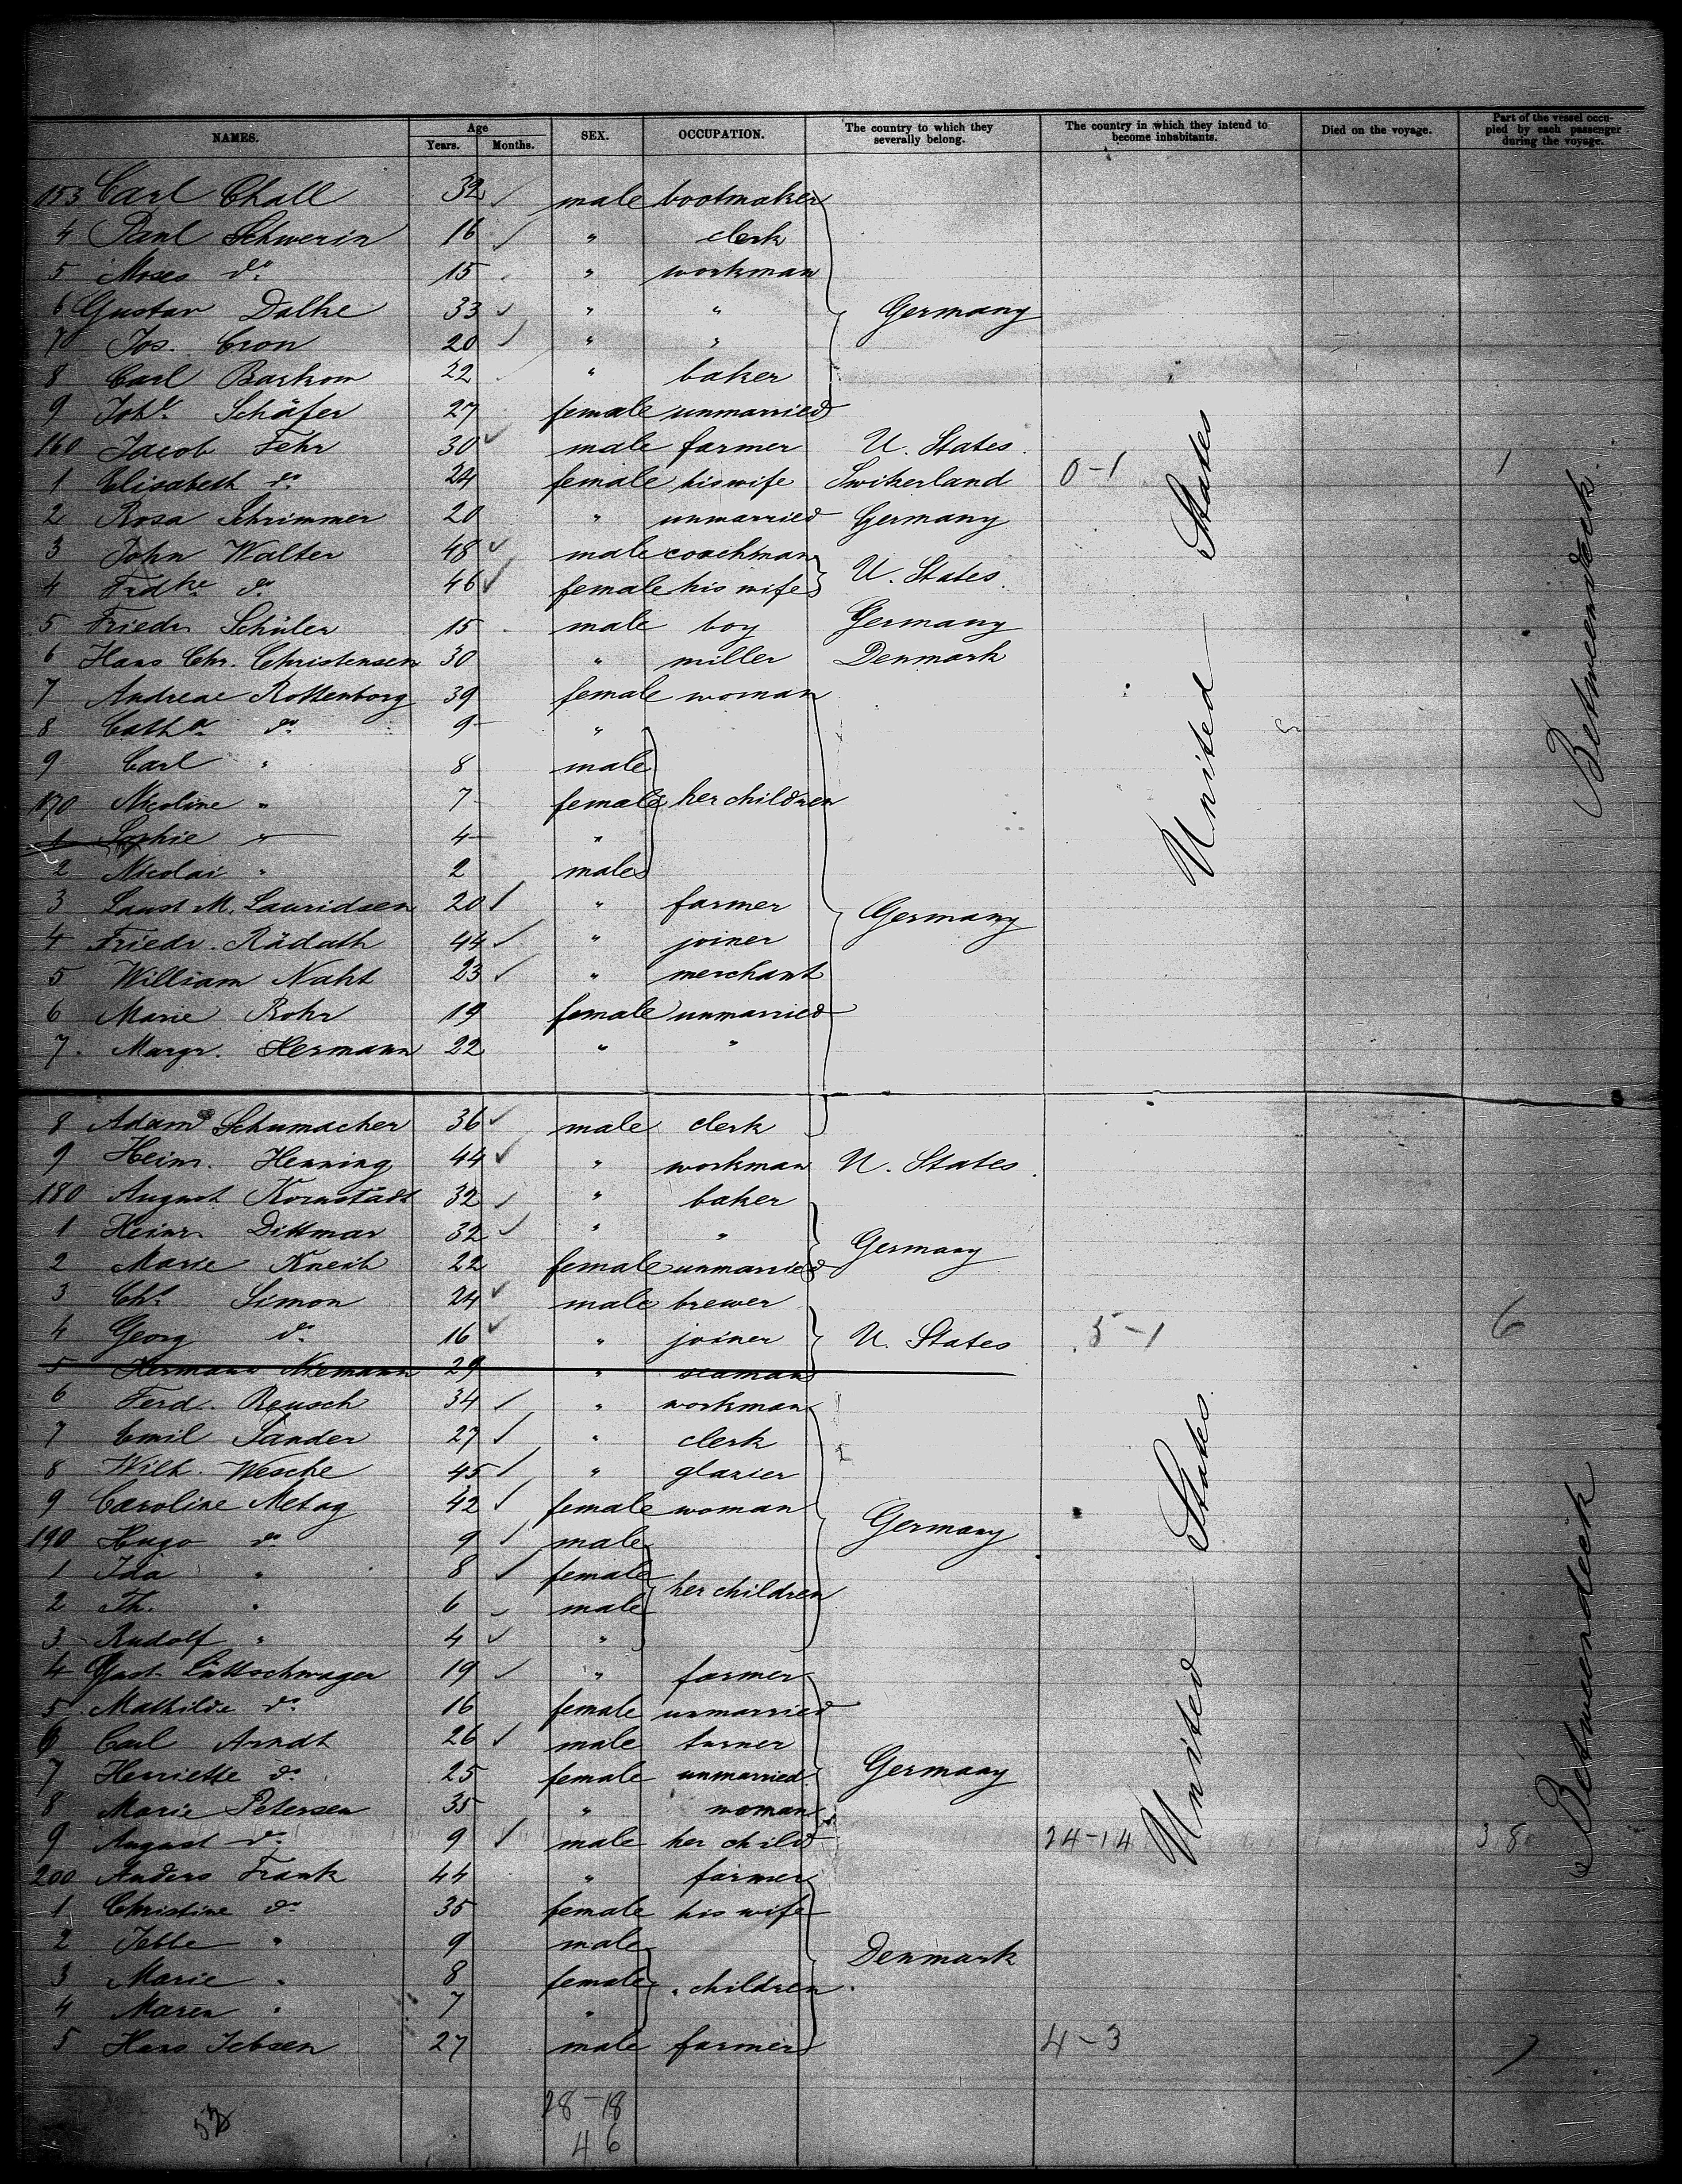 NAMES. Age Years. Months. SEX. OCCUPATION. The country to which they severally belong. The country in which they intend to become inhabitants. Died on the voyage. Part of the vessel occupied by each passenger during the voyage.
153 Carl Chall 32 ✓ male bootmaker
4 Paul Schwerin 16 ✓ " clerk
5 Moses do 15 " workman
6 Gustav Dalke 33 ✓ " " Germany
7 Jos. Cron 20 ✓ " "
8 Carl Barkow 22 " baker
9 Schäfer 27 female unmarried
160 Jacob Fehr 30 ✓ male farmer U. States.
1 Elisabeth do 24 female his wife Switzerland 0-1 1
2 Rosa Schrimmer 20 " unmarried Germany
3 John Walter 48 ✓ male coachman
4 Fredke do 46 ✓ female his wife U. States.
5 Friedr. Schüler 15 male boy Germany
6 Hans Chr. Christensen 30 " miller Denmark
7 Andreae Rottenborg 39 female woman
8 Catha do 9 "
9 Carl " 8 male
170 Nicoline " 7 female her children
1 Sophie " 4 "
2 Nicolai " 2 male
3 Laust M. Lauridsen 20 ✓ " farmer Germany
4 Friedr. Rädath 44 ✓ " joiner
5 William Naht 23 ✓ " merchant
6 Marie Rohr 19 female unmarried
7. Margr. Hermann 22 " "
United States
Betweendeck.
8 Adam Schumacher 36 ✓ male clerk
9 Heinr. Henning 44 ✓ " workman U. States.
180 August Kornstädt 32 ✓ " baker
1 Heinr. Dittmar 32 ✓ " " Germany
2 Marie Kneib 22 female unmarried
3 Chs Simon 24 ✓ male brewer
4 Georg do 16 ✓ " joiner U. States 5-1 6
5 Hermann Niemann 29 " seaman
6 Ferd. Reusch 34 ✓ " workman
7 Emil Sander 27 ✓ " clerk
8 Wilh. Wesche 45 ✓ " glazier
9 Caroline Metag 42 ✓ female woman Germany
190 Hugo do 9 ✓ male
1 Ida " 8 ✓ female her children
2 Th. " 6 ✓ male
3 Rudolf " 4 ✓ "
4 Gust. Lüttschwager 19 ✓ " farmer
5 Mathilde do 16 female unmarried
6 Carl Arndt 26 ✓ male turner
7 Henriette do 25 female unmarried Germany
8 Marie Petersen 35 " woman
9 August do 9 ✓ male her child 24-14 38
200 Anders Frank 44 " farmer
1 Christine do 35 female his wife
2 Jebbe " 9 male Denmark
3 Marie " 8 female " children
4 Maren " 7 "
5 Hans Jebsen 27 male farmer 4-3 7
United States.
Betweendeck
28-18
46